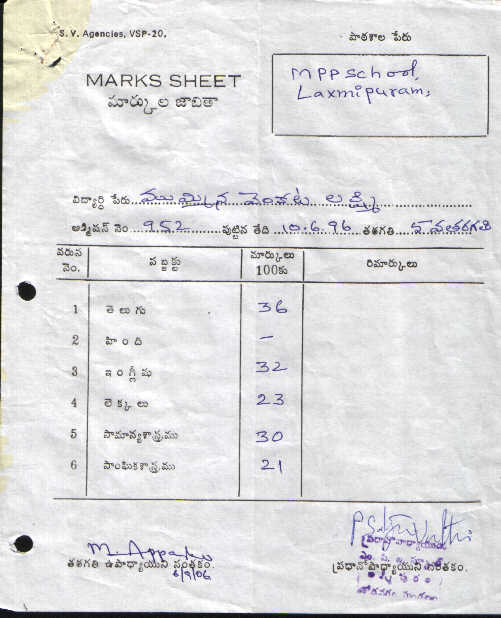 S. V. Agencies, VSP-20.
పాఠశాల పేరు
MPP School,
Laxmipuram,
MARKS SHEET
మార్కుల జాబితా
విద్యార్థి పేరు ముమ్మిన వెంకట లక్ష్మి
అడ్మిషన్ నెం 952 పుట్టిన తేది 10.6.96 తరగతి వ తరగతి
వరుస నెం. సబ్జెక్టు మార్కులు 100కు రిమార్కులు
1 తెలుగు 36
2 హింది -
3 ఇంగ్లీషు 32
4 లెక్కలు 23
5 సామాన్యశాస్త్రము 30
6 సాంఘికశాస్త్రము 21
తరగతి ఉపాధ్యాయుని సంతకం.
ప్రధానోపాధ్యాయుని సంతకం.
6/9/06